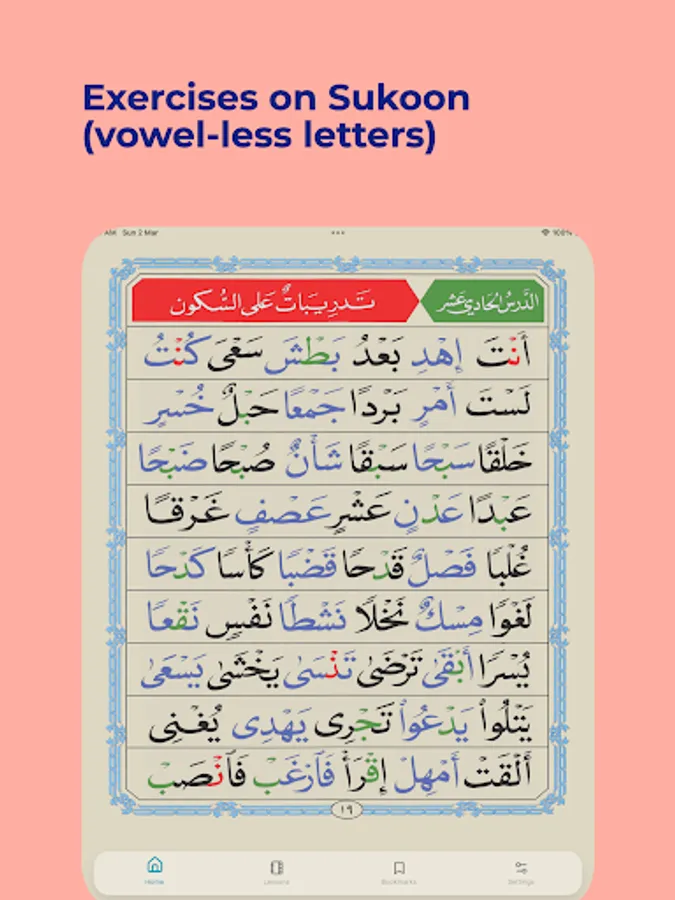 Exercises on Sukoon
(vowel-less letters)
AM Sun 2 Mar
100%
الدَّرسُ الحَادِي عَشَر تَدرِيبَاتٌ عَلى السُّكون
أَنْتَ إِهْدِ بَعْدُ بَطْشَ سَعْىَ كُنْتُ
لَسْتَ أَمْرٍ بَرْدًا جَمْعًا حَبْلٌ خُسْرٍ
خَلْقًا سَبْحًا سَبْقًا شَأْنٌ صُبْحًا ضَبْحًا
عَبْدًا عَدْنٍ عَشْرٍ عَصْفٍ غَرْقًا
غُلْبًا فَصْلٌ قَدْحًا قَضْبًا كَأْسًا كَدْحًا
لَغْوًا مِسْكٌ نَخْلًا نَشْطًا نَفْسٍ نَقْعًا
يُسْرًا أَبْقَى تَرْضَىٰ تَنْسَىٰ يَخْشَىٰ يَسْعَىٰ
يَتْلُواْ يَدْعُواْ تَجْرِى يَهْدِى يُغْنِى
أَلْقَتْ أَمْهِلْ إِقْرَأْ فَٱرْغَبْ فَٱنْصَبْ
١٩
Home
Lessons
Bookmarks
Settings